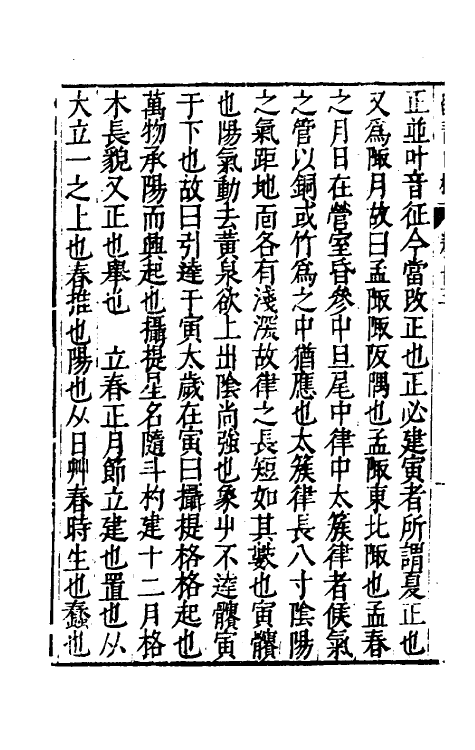 正並叶音征今當改正也正必建寅者所謂夏正也
又爲陬月故曰孟陬陬阪隅也孟陬東北陬也孟春
之月日在營室昏參中旦尾中律中太簇律者候氣
之管以銅或竹爲之中猶應也太簇律長八寸陰陽
之氣距地面各有淺深故律之長短如其數也寅髕
也陽氣動去黃泉欲上出陰尚強也象宀不達髕寅
于下也故曰引達于寅太歲在寅曰攝提格格起也
萬物承陽而興起也攝提星名隨斗杓建十二月格
木長貌又正也舉也　立春正月節立建也置也从
大立一之上也春推也陽也从日艸春時生也蠢也